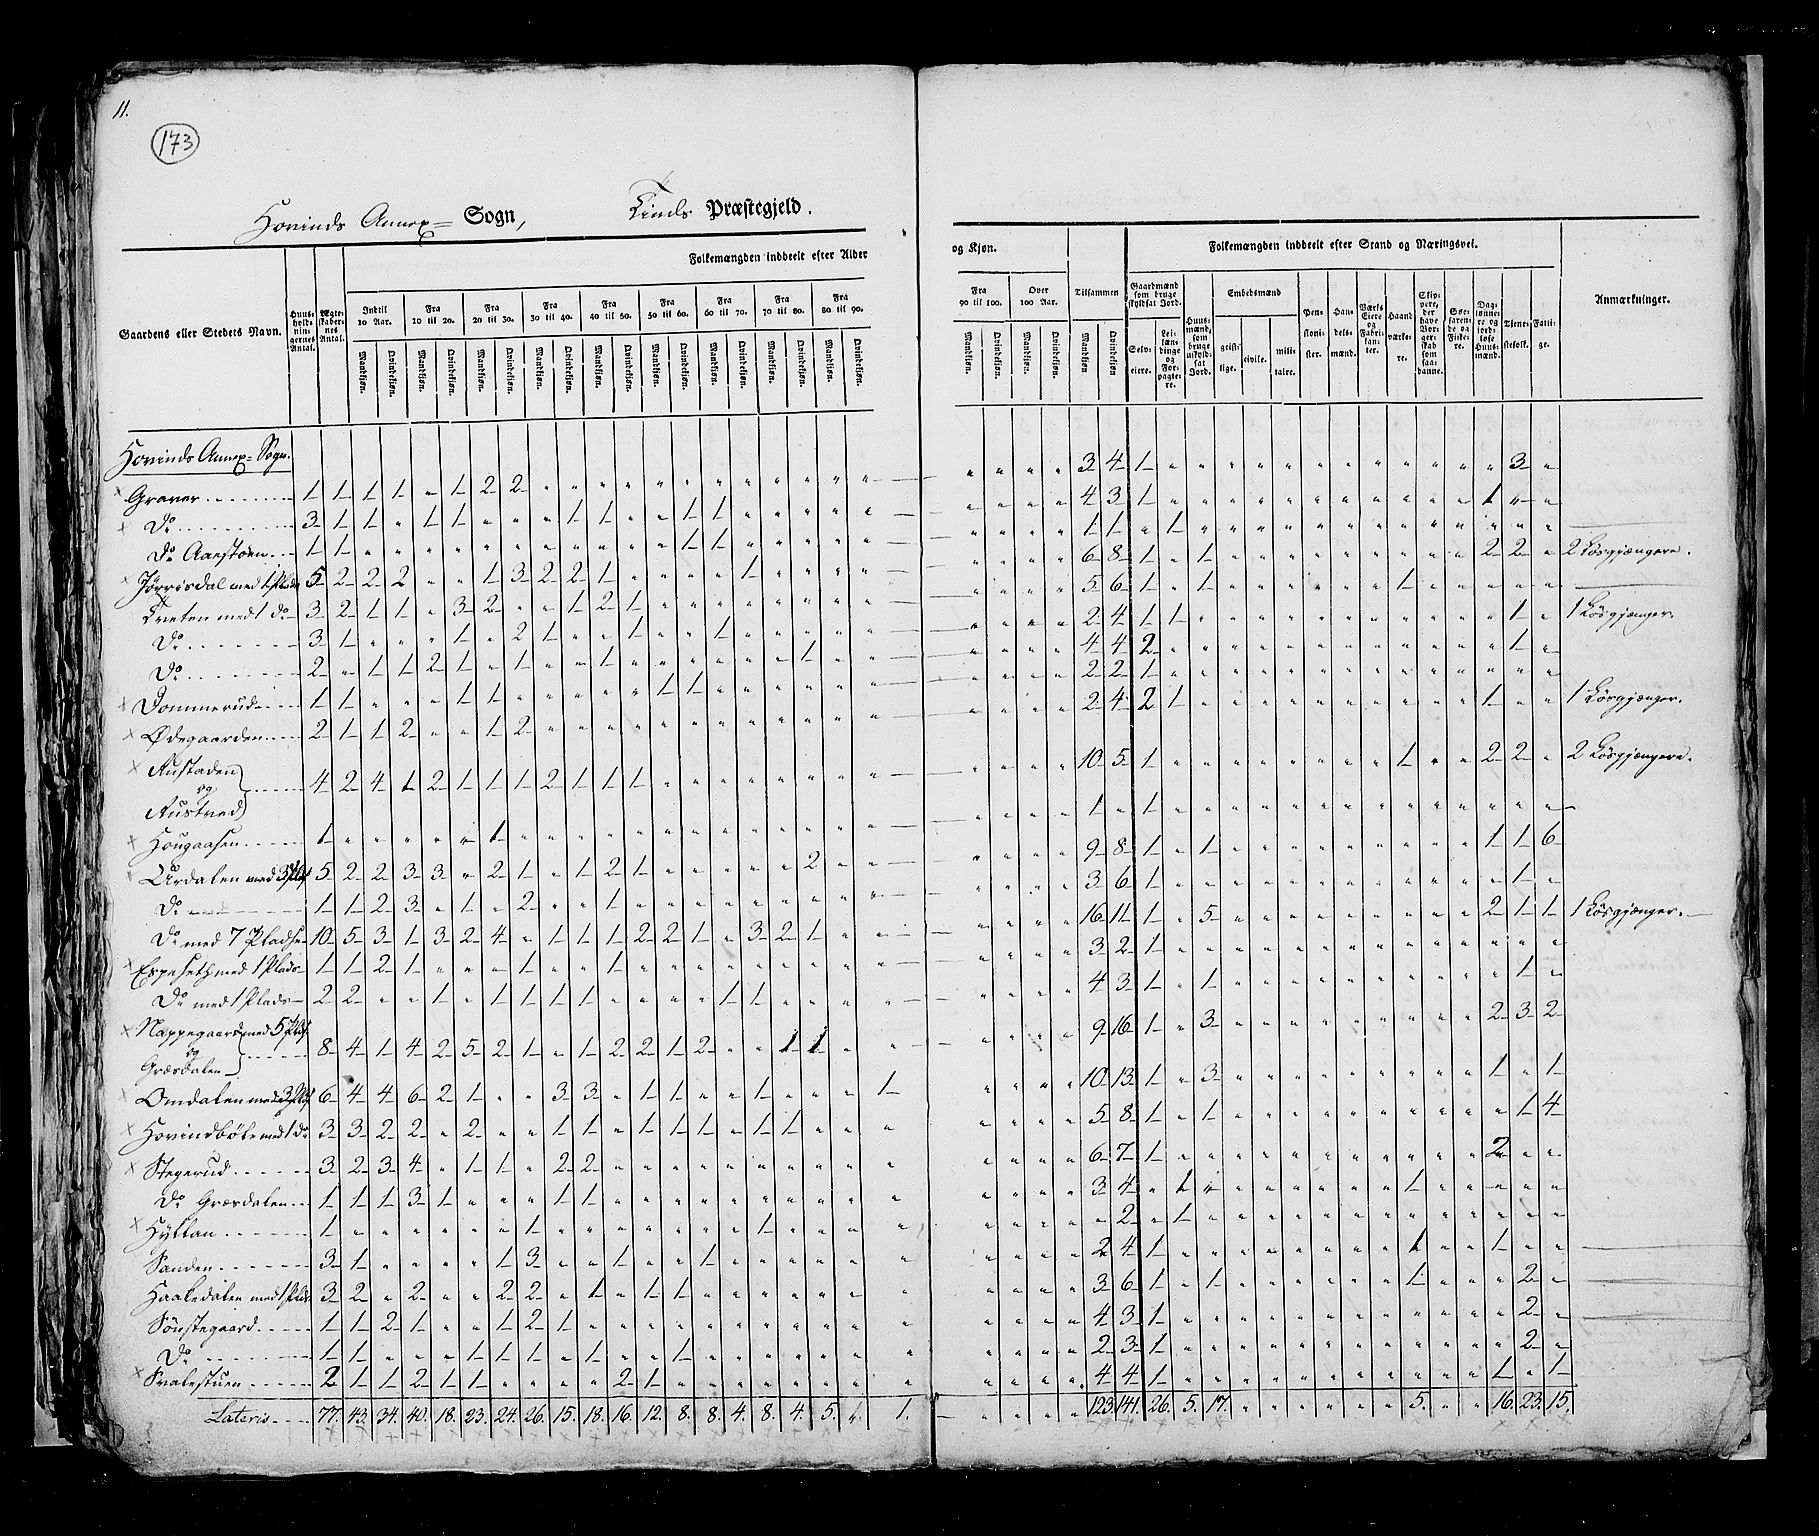 11.
173
Hovinds Annex= Sogn, Tinds Præstegjeld.
Gaardens eller Stedets Navn.
Huus-holdnin-gernes Antal.
Ægte-skaber-nes Antal.
Folkemængden inddeelt efter Alder og Kjøn.
Indtil 10 Aar. Fra 10 til 20. Fra 20 til 30. Fra 30 til 40. Fra 40 til 50. Fra 50 til 60. Fra 60 til 70. Fra 70 til 80. Fra 80 til 90. Fra 90 til 100. Over 100 Aar.
Mandkjøn. Qvindekjøn.
Tilsammen
Folkemængden inddeelt efter Stand og Næringsvei.
Gaardmænd som bruge skyldsat Jord.
Selv-eiere. Lei-lændinge og For-pagte-re.
Huus-mænd, som bruge uskyld-sat Jord.
Embedsmænd
geist-lige. civile. mili-taire.
Pen-sioni-ster.
Han-dels-mænd.
Værks Eiere og Fabri-kan-ter.
Haand-værke-re.
Skip-pere, der have Bor-ger-skab som saa-danne.
Søe-faren-de og Fiske-re.
Dag-lønne-re og jord-løse Huus-mænd.
Tjene-stefolk.
Fatti-ge.
Anmærkninger.
Hovinds Annex= Sogn.
Graver 1 1 1 1 " 1 2 2 3 4 1 3
Do 3 1 1 " 1 1 " " " 1 1 " " 1 1 4 3 1 1
Do Aaestøen 1 1 1 1 1 1 1
Jørrisdal med 1 Plads 5 2 2 2 " " 1 3 2 2 1 1 6 8 1 1 2 2 2 Løsgjængere.
Tveten med 1 Do 3 2 1 1 " 3 2 " " 1 2 1 5 6 1 1 1
Do 3 1 " " " 1 " 2 1 " " 1 " " 1 2 4 1 1 1 1 Løsgjænger.
Do 2 " 1 1 2 1 " 1 " " 1 1 4 4 2 1
Dommerud 1 1 " " " 1 1 1 1 2 2 1
Ødegaarden 2 1 1 2 " " 1 2 2 4 2 1 1 1 Løsgjænger.
Rustaden
og
Rustved 4 2 4 1 2 1 1 1 2 1 1 1 10 5 1 1 2 2 2 Løsgjængere.
Hougaasen 1 1 1 1
Urdalen med 3 Pldf 5 2 2 3 3 " 2 1 " 1 2 1 2 9 8 1 1 1 1 6
Do 1 1 2 3 " 1 " 2 " " 1 3 6 1 1
Do med 7 Pladse 10 5 3 1 3 2 4 " 1 1 1 2 2 1 " 3 2 1 16 11 1 5 2 1 1 1 Løsgjænger.
Espeseth med 1 Plads 1 1 2 1 " " " 1 " " 1 3 2 1
Do med 1 Plads 2 2 " " 1 " 1 1 1 1 1 1 4 3 1 1 1
Nappegaard med 5 Pldf
og
Græsdalen 8 4 1 4 2 5 2 1 " 1 2 2 1 2 " " 1 1 9 16 1 3 2 3 2
Omdalen med 3 Pldf 6 4 4 6 2 1 " " 3 3 " 1 1 " " 1 1 10 13 1 3 1 1
Hovindbøle med 1 Do 3 3 2 2 " 2 " " 1 1 " 1 1 1 " 1 1 5 8 1 1 1 4
Stegerud 3 2 3 4 " 1 1 " 2 2 6 7 1 2
Do Græsdalen 1 1 1 3 1 " " " 1 1 3 4 1 1
Hyllan 1 1 1 2 1
Sanden 3 1 " " " " 1 3 " " 1 " " 1 2 4 1 1 1
Haakedalen med 1 Plds 3 2 " 2 " " 2 2 " 1 " 1 1 3 6 1 1 1 2
Sønstegaard 1 1 2 1 " " 1 2 1 4 3 1 2
Do 1 1 " " " " 1 1 1 " 1 " " 1 2 3 1 2
Svalestuen 2 1 1 2 1 1 " " " " 2 1 4 4 1 1 1
Lateris 77. 43. 34. 40. 18. 23. 24. 26. 15. 18. 16. 12. 8. 8. 4. 8. 4. 5. 1. 123. 141. 26. 5. 17. 5. 16. 23. 15.